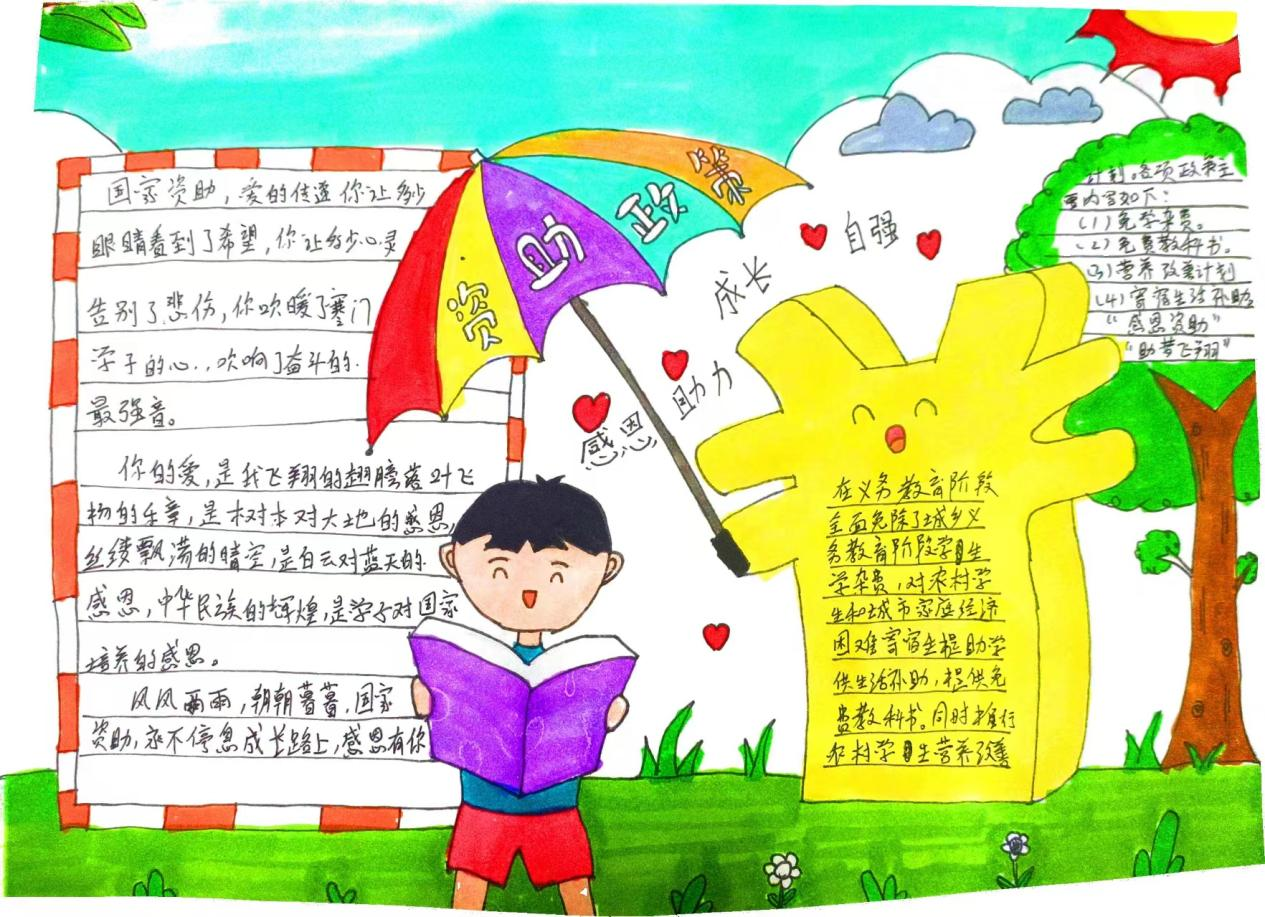 国家资助，爱的传递你让多少
眼睛看到了希望，你让多少心灵
告别了悲伤，你吹暖了寒门
学子的心，吹响了奋斗的
最强音。
你的爱，是我飞翔的翅膀落叶飞
扬的乐章，是树木对大地的感恩，
丝缕飘荡的晴空，是白云对蓝天的
感恩，中华民族的辉煌，是学子对国家
培养的感恩。
风风雨雨，朝朝暮暮，国家
资助，永不停息成长路上，感恩有你
资助政策
自强
成长
助力
感恩
在义务教育阶段
全面免除了城乡义
务教育阶段学生
学杂费，对农村学
生和城市家庭经济
困难寄宿生提助学
供生活补助，提供免
费教科书。同时推行
农村学生营养改善
计划。各项政策主
要内容如下：
（1）免学杂费。
（2）免费教科书。
（3）营养改善计划
（4）寄宿生活补助
“感恩资助”
“助梦飞翔”